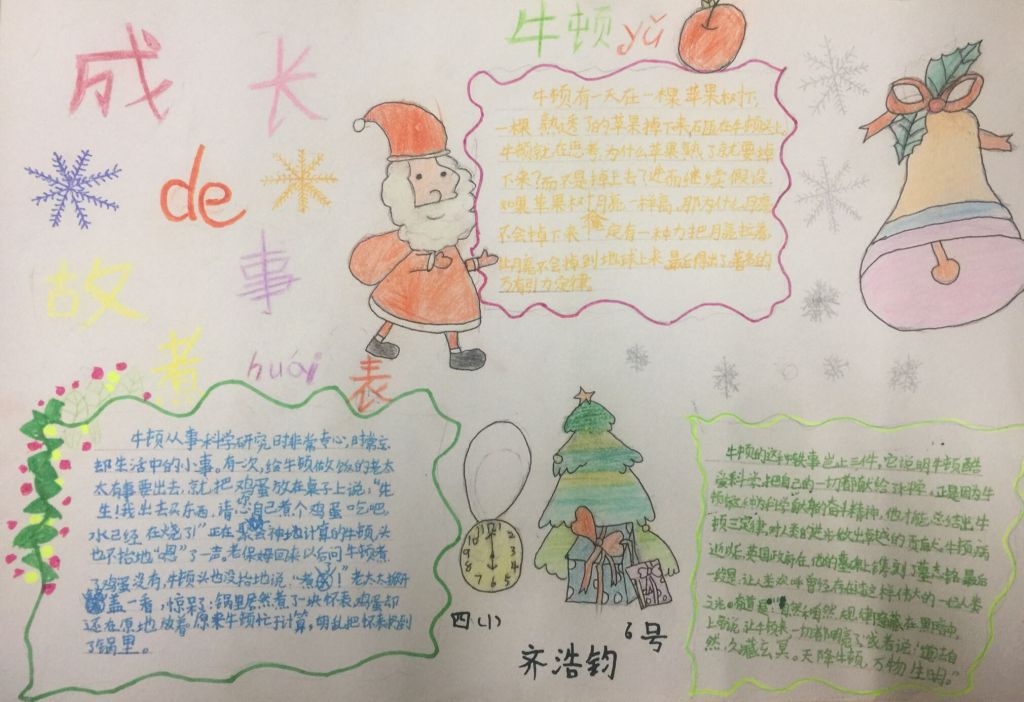 成长
de
故事
牛顿yǔ
牛顿有一天在一棵苹果树下,
一棵熟透了的苹果掉下来砸在牛顿头上,
牛顿就在思考,为什么苹果熟了就要掉
下来?而不是掉上去?进而继续假设,
如果苹果树月亮一样高,那为什么月亮
不会掉下来?一定有一种力把月亮拉着,
让月亮不会掉到地球上来,最后得出了著名的
万有引力定律
煮huái表
牛顿从事科学研究时非常专心,时常忘
却生活中的小事。有次,给牛顿做饭的老太
太有事要出去,就把鸡蛋放在桌子上说:“先
生!我出去买东西,请您自己煮个鸡蛋吃吧,
水已经在烧了!”正在聚会神地计算的牛顿,头
也不抬地“嗯”了一声,老保姆回来以后问牛顿煮
了鸡蛋没有,牛顿头也没抬地说:“煮了!”老太太掀开
盖一看,惊呆了:锅里居然煮了一块怀表,鸡蛋却
还在原地放着。原来牛顿忙于计算,胡乱把怀表扔到
了锅里。
12 1 2 3 4 5 6 7 8 9 10 11
四(1)
6号
齐浩钧
牛顿的这种轶事岂止三件,它说明牛顿酷
爱科学,把自己的一切都献给科学,正是因为牛
顿科学献事的奋斗精神,他才能总结出牛
顿三定律,对人类的进步做出卓越的贡献。牛顿病
逝后,英国政府在他的墓碑上镌刻了墓志铭最后
一段是:让人类欢呼曾经存在过这样伟大的一位人类
之光。自然和自然规律隐藏在黑暗中,
上帝说,让牛顿来,一切都明亮了。或者说:“自
然,久藏玄冥。天降牛顿,万物生明。”